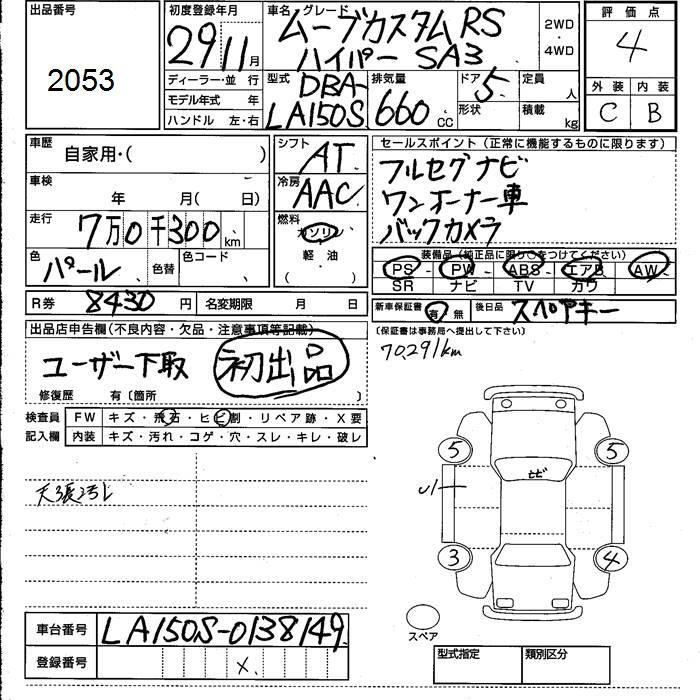 出品番号
2053
初度登録年月
29 11月
車名 グレード
ムーブカスタムRS
ハイパー SA3
2WD
・
4WD
評価点
4
外装 内装
C B
ディーラー・並行
モデル年式 年
ハンドル 左・右
型式
DBA-
LA150S
排気量
660 cc
ドア 5
形状
定員 人
積載 kg
車歴
自家用・( )
車検
年 月( 日)
走行
7万0千300 km
色
パール
色替
色コード
R券 8430 円
名変期限 月 日
シフト
AT
冷房
AAC
燃料
ガソリン
軽・油
( )
セールスポイント (正常に機能するものに限ります)
フルセグナビ
ワンオーナー車
バックカメラ
装備品(純正品に限り○をつけてください)
PS - PW - ABS - エアB - AW
SR ナビ TV カワ
新車保証書 有/無
後日品 スペアキー
(保証書は事務局へ提出して下さい)
70291km
出品店申告欄(不良内容・欠品・注意事項等記載)
ユーザー下取 初出品
修復歴 有〔箇所 〕
検査員 FW キズ・飛石・ヒビ割・リペア跡・X要
記入欄 内装 キズ・汚れ・コゲ・穴・スレ・キレ・破レ
天張汚レ
5 5
ヒビ
3 4
スペア
車台番号 LA150S-0138149
登録番号 x
型式指定 類別区分